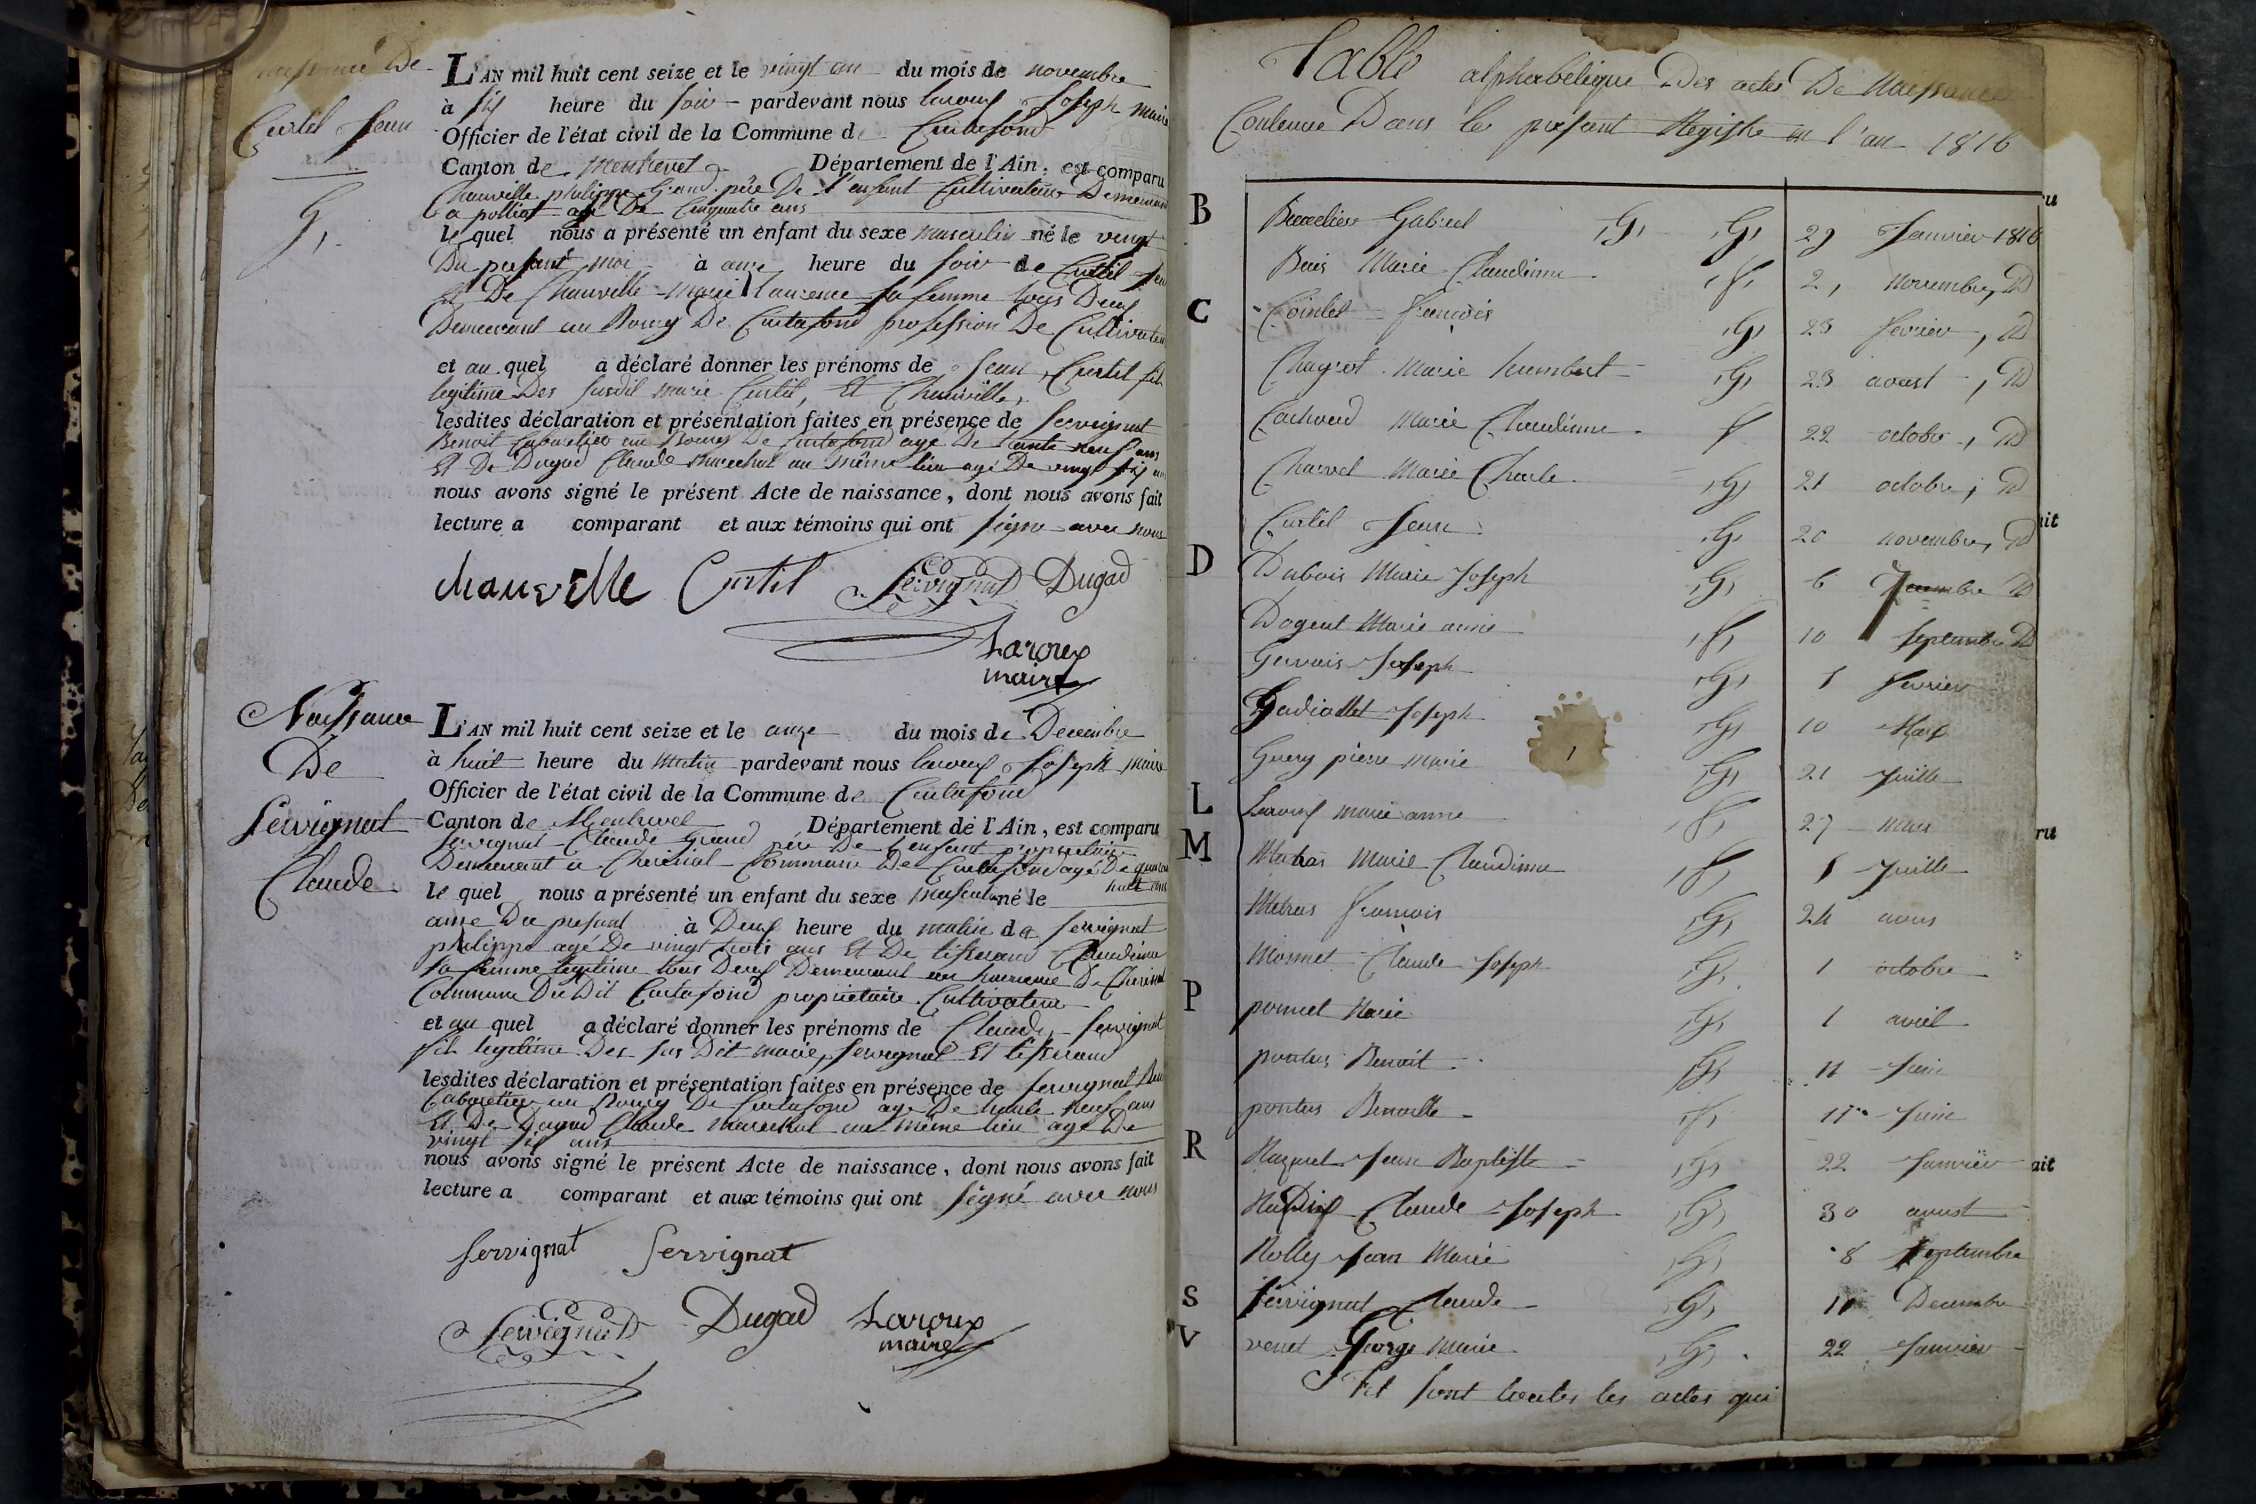 Naissance De
Curtil Jean
G,
L'AN mil huit cent seize et le vingt un du mois de novembre
à six heure du soir pardevant nous laroux Joseph maire
Officier de l'état civil de la Commune de Curtafond
Canton de Montrevel Département de l'Ain, est comparu
Chauville philippe Grand père De l'enfant Cultivateur Demeurant
a polliat agé De Cinquante ans
le quel nous a présenté un enfant du sexe masculin né le vingt
Du présent moi à onze heure du soir de Curtil Jean
et De Chauville marie Laurence sa femme tous Deux
Demeurant au Bourg De Curtafond profession De Cultivateur
et au quel a déclaré donner les prénoms de Jean Curtil fils
legitime Des susdit marié Curtil, Et Chauville,
lesdites déclaration et présentation faites en présence de servignat
Benoit Cabaretier au Bourg De Curtafond age De trente neuf ans
Et De Dugad Claude marechal au même lieu agé De vingt six ans
nous avons signé le présent Acte de naissance, dont nous avons fait
lecture a comparant et aux témoins qui ont signé avec nous
chauville Curtil Servignat Dugad
Laroux
maire
Naissance
De
Servignat
Claude
L'AN mil huit cent seize et le onze du mois de Decembre
à huit heure du Matin pardevant nous laroux Joseph maire
Officier de l'état civil de la Commune de Curtafond
Canton de Montrevel Département de l'Ain, est comparu
Servignat Claude Grand père De l'enfant propriétaire
Demeurant a Commune De Curtafond agé De quarante
huit ans
le quel nous a présenté un enfant du sexe masculin né le
onze Du présent à Deux heure du matin de servignat
philippe agé De vingt trois ans Et De tisserand Claudine
sa femme legitime tous Deux Demeurant au hameau De
Commune Du Dit Curtafond propriétaire Cultivateur
et au quel a déclaré donner les prénoms de Claude servignat
fils legitime Des sus Dit marié, servignat Et tisserand
lesdites déclaration et présentation faites en présence de servignat
Cabaretier au Bourg De Curtafond age De trente neuf ans
Et De Dugad Claude marechal au même lieu agé De
vingt six ans
nous avons signé le présent Acte de naissance, dont nous avons fait
lecture a comparant et aux témoins qui ont signé avec nous
servignat servignat
Servignat Dugad Laroux
maire
Table alphabetique Des actes De Naissance
Contenue Dans le présent Registre en l'an 1816
B Gabriel ,G, ,G, 29 Janvier 1816
Marie Claudine ,f, 2, novembre, D
C Cointet francois ,G, 23 fevrier, D
Chagrot Marie humbert ,G, 23 aoust, D
Marie Claudine f 22 octobre, D
Charvet Marie Charle ,G, 21 octobre, D
Curtil Jean ,G, 20 novembre, D
D Dubois Marie Joseph ,G, 6 D
Dogent Marie anne ,f, 10 septembre D
Gervais Joseph ,G, 1 fevrier
Joseph ,G, 10 Mars
Guery pierre marie ,G, 21 Juille
L Laroux marie anne ,f, 27 mars
M Matras Marie Claudine ,f, 1 Juille
Matras francois ,G, 24 aous
Monnet Claude Joseph ,G, 1 octobre
P Marie ,G, 1 avril
pontus Benoit ,G, 11 Juin
pontus Benoitte ,f, 11 Juin
R Jean Baptiste ,G, 22 Janvier
Claude Joseph ,G, 30 aoust
Rolly Jean Marie ,G, 8 septembre
S servignat Claude ,G, 11 Decembre
V venet George Marie ,G, 22 Janvier
sont toutes les actes qui
ru
ait
ru
ait